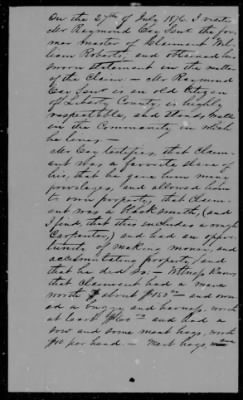 On the 27th of July 1876 I visited
Mr Raymond Cay Senr the for
mer master of Claimant Wil
liam Roberts, and obtained his
sworn statement in the matter
of the Claim — Mr Raymond
Cay Senr is an old Citizen
of Liberty County, is highly
respectable, and stands well
in the Community in which
he lives —
Mr Cay testifies, that Claim-
ant was a favorite slave of
his, that he gave him many
privileges, and allowed him
to own property, that Claim-
ant was a blacksmith, (and
I find, that this includes a rough
Carpenter,) and had an oppor
tunity of making money and
accumulating property, and
that he did so — Witness knows
that Claimant had a mare
worth about $150 — and own
ed a buggy and harness, worth
at least $60 and had a
sow and some meat hogs, worth
$10 per head — meat hogs,